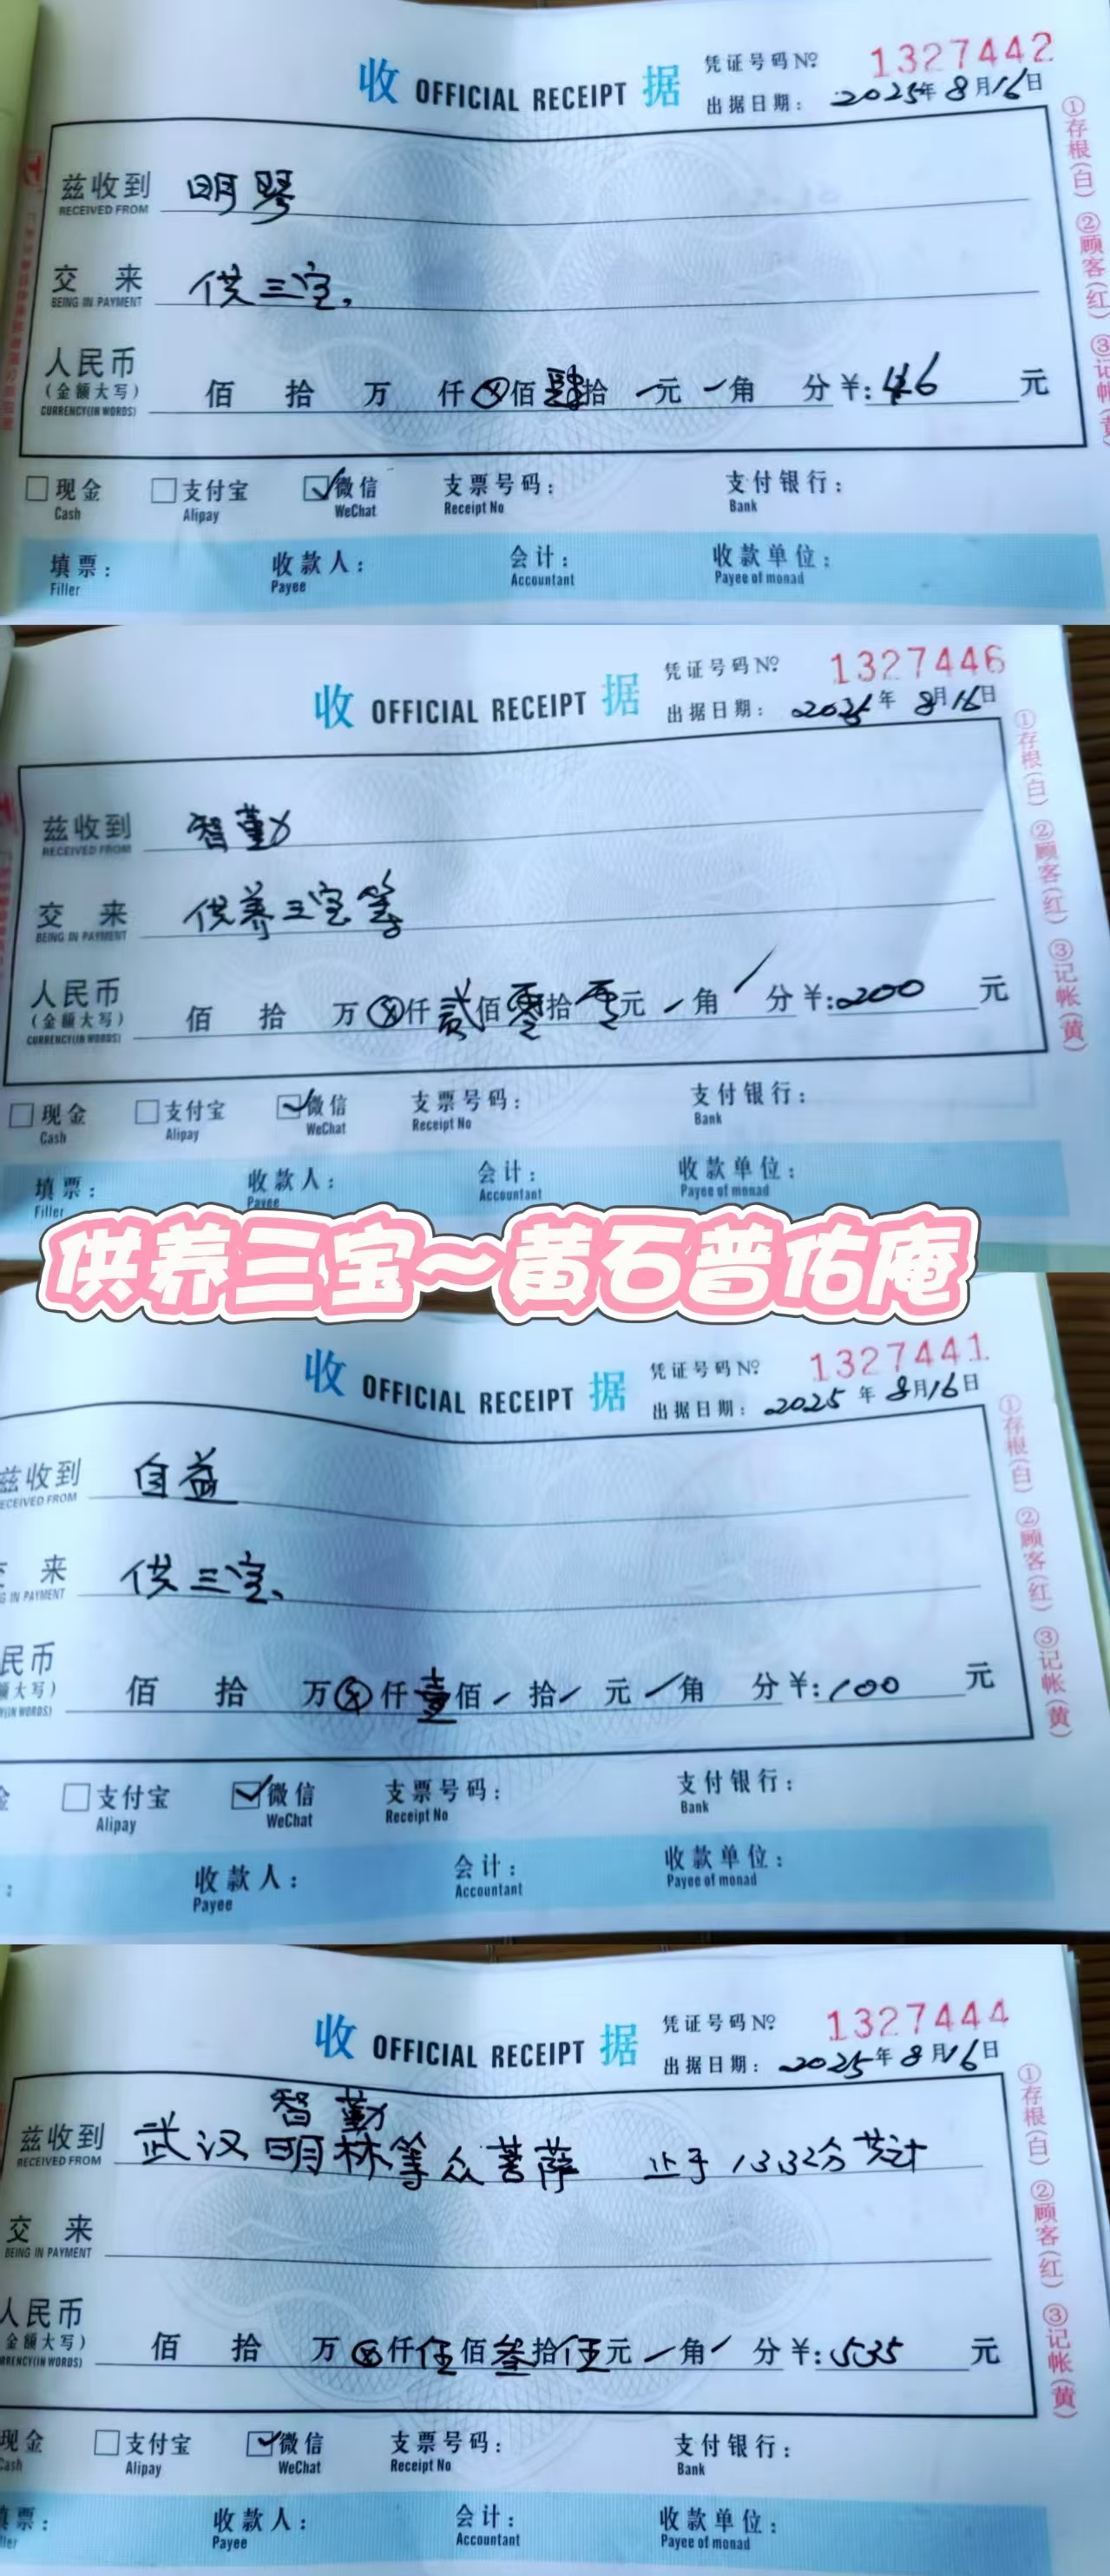 收 OFFICIAL RECEIPT 据
凭证号码№ 1327442
出据日期: 2025年8月16日
①存根(白) ②顾客(红) ③记帐(黄)
兹收到 明琴
RECEIVED FROM
交 来 供三宝,
BEING IN PAYMENT
人民币
(金额大写) 佰 拾 万 仟 ⊗ 佰 肆 拾 一元 一角 分 ¥: 46 元
CURRENCY(IN WORDS)
现金 支付宝 ✓微信 支票号码: 支付银行:
Cash Alipay WeChat Receipt No Bank
填票: 收款人: 会计: 收款单位:
Filler Payee Accountant Payee of monad
收 OFFICIAL RECEIPT 据
凭证号码№ 1327446
出据日期: 2025年 8月16日
①存根(白) ②顾客(红) ③记帐(黄)
兹收到 智勤
RECEIVED FROM
交 来 供养三宝等
BEING IN PAYMENT
人民币
(金额大写) 佰 拾 万 ⊗ 仟 贰 佰 零 拾 零 元 / 角 / 分 ¥: 200 元
CURRENCY(IN WORDS)
现金 支付宝 ✓微信 支票号码: 支付银行:
Cash Alipay WeChat Receipt No Bank
填票: 收款人: 会计: 收款单位:
Filler Payee Accountant Payee of monad
供养三宝~黄石普佑庵
收 OFFICIAL RECEIPT 据
凭证号码№ 1327441
出据日期: 2025 年 8月16日
①存根(白) ②顾客(红) ③记帐(黄)
兹收到 自益
ECEIVED FROM
来 供三宝、
G IN PAYMENT
民币
额大写) 佰 拾 万 ⊗ 仟 壹 佰 / 拾 / 元 / 角 分 ¥: 100 元
Y(IN WORDS)
支付宝 ✓微信 支票号码: 支付银行:
Alipay WeChat Receipt No Bank
: 收款人: 会计: 收款单位:
Payee Accountant Payee of monad
收 OFFICIAL RECEIPT 据
凭证号码№ 1327444
出据日期: 2025年8月16日
①存根(白) ②顾客(红) ③记帐(黄)
智勤
兹收到 武汉明林等众菩萨 止于1332分共计
RECEIVED FROM
交 来
BEING IN PAYMENT
人民币
金额大写) 佰 拾 万 ⊗ 仟 伍 佰 叁 拾 伍 元 / 角 / 分 ¥: 535 元
RRENCY(IN WORDS)
现金 支付宝 ✓微信 支票号码: 支付银行:
Cash Alipay WeChat Receipt No Bank
填票: 收款人: 会计: 收款单位:
ller Payee Accountant Payee of monad